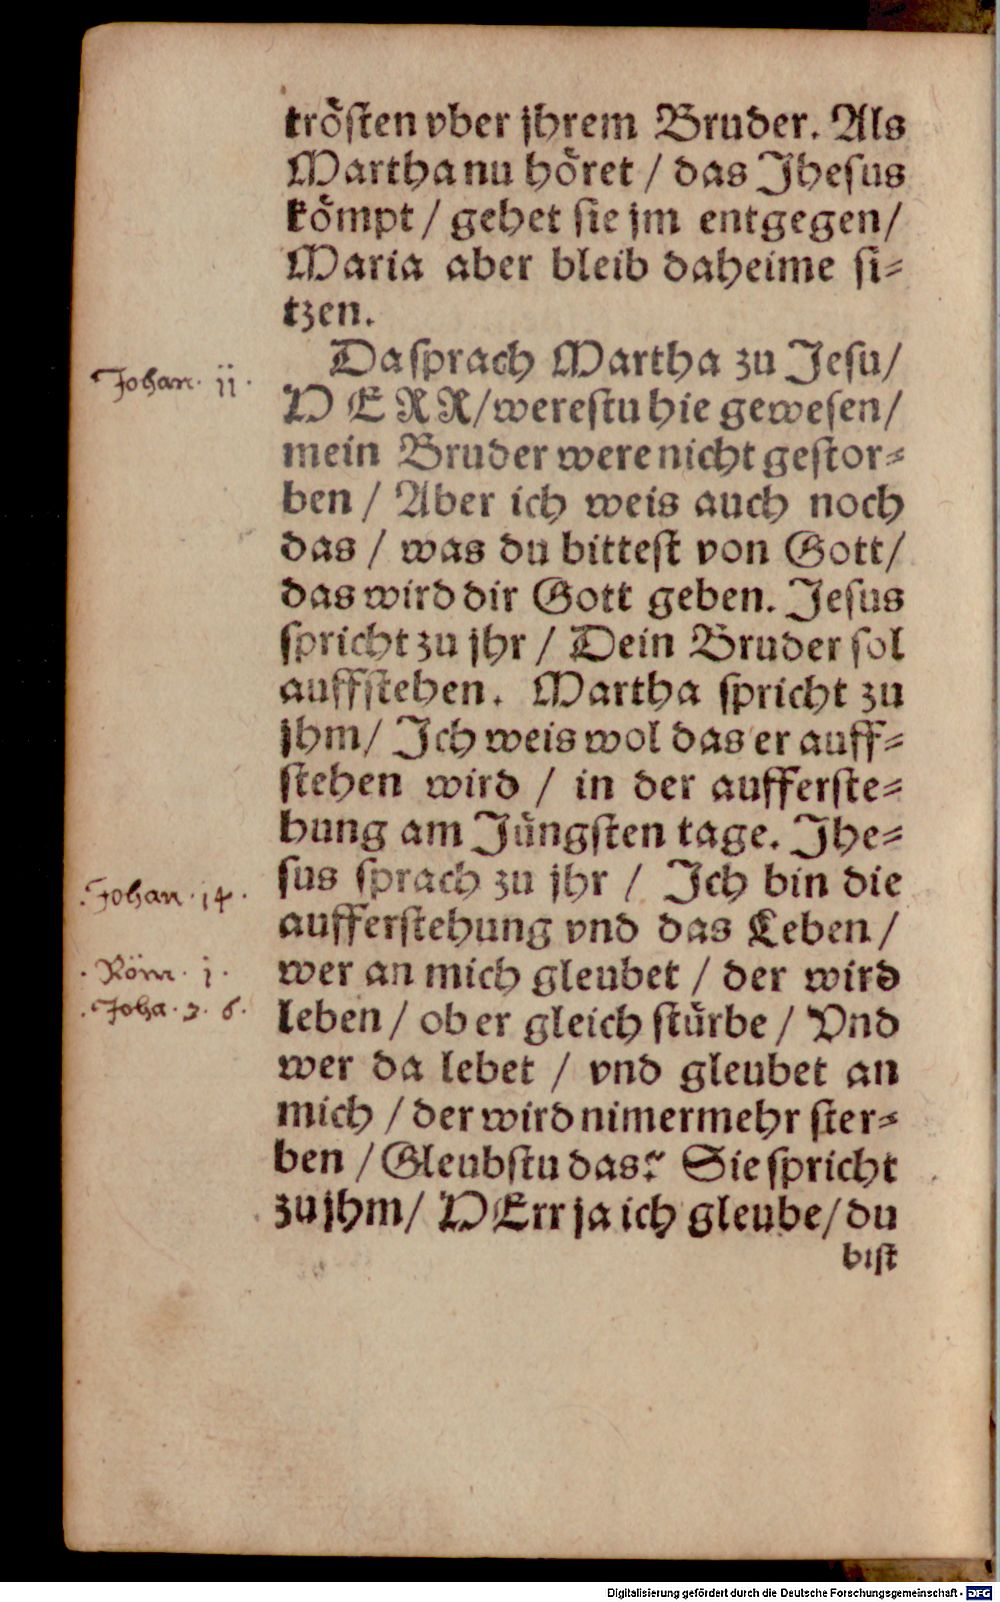 trösten vber jhrem Bruder. Als
Martha nu höret / das Jhesus
kömpt / gehet sie jm entgegen /
Maria aber bleib daheime si⸗
tzen.
Da sprach Martha zu Jesu /
HERR / werestu hie gewesen /
Johan. 11.
mein Bruder were nicht gestor⸗
ben / Aber ich weis auch noch
das / was du bittest von Gott /
das wird dir Gott geben. Jesus
spricht zu jhr / Dein Bruder sol
auffstehen. Martha spricht zu
jhm / Ich weis wol das er auff⸗
stehen wird / in der aufferste⸗
hung am Jüngsten tage. Jhe⸗
sus sprach zu jhr / Ich bin die
Johan. 14.
aufferstehung vnd das Leben /
wer an mich gleubet / der wird
Röm. 1.
leben / ob er gleich stürbe / Vnd
Joha. 3. 6.
wer da lebet / vnd gleubet an
mich / der wird nimermehr ster⸗
ben / Gleubstu das? Sie spricht
zu jhm / HErr ja ich gleube / du
bist
Digitalisierung gefördert durch die Deutsche Forschungsgemeinschaft - DFG